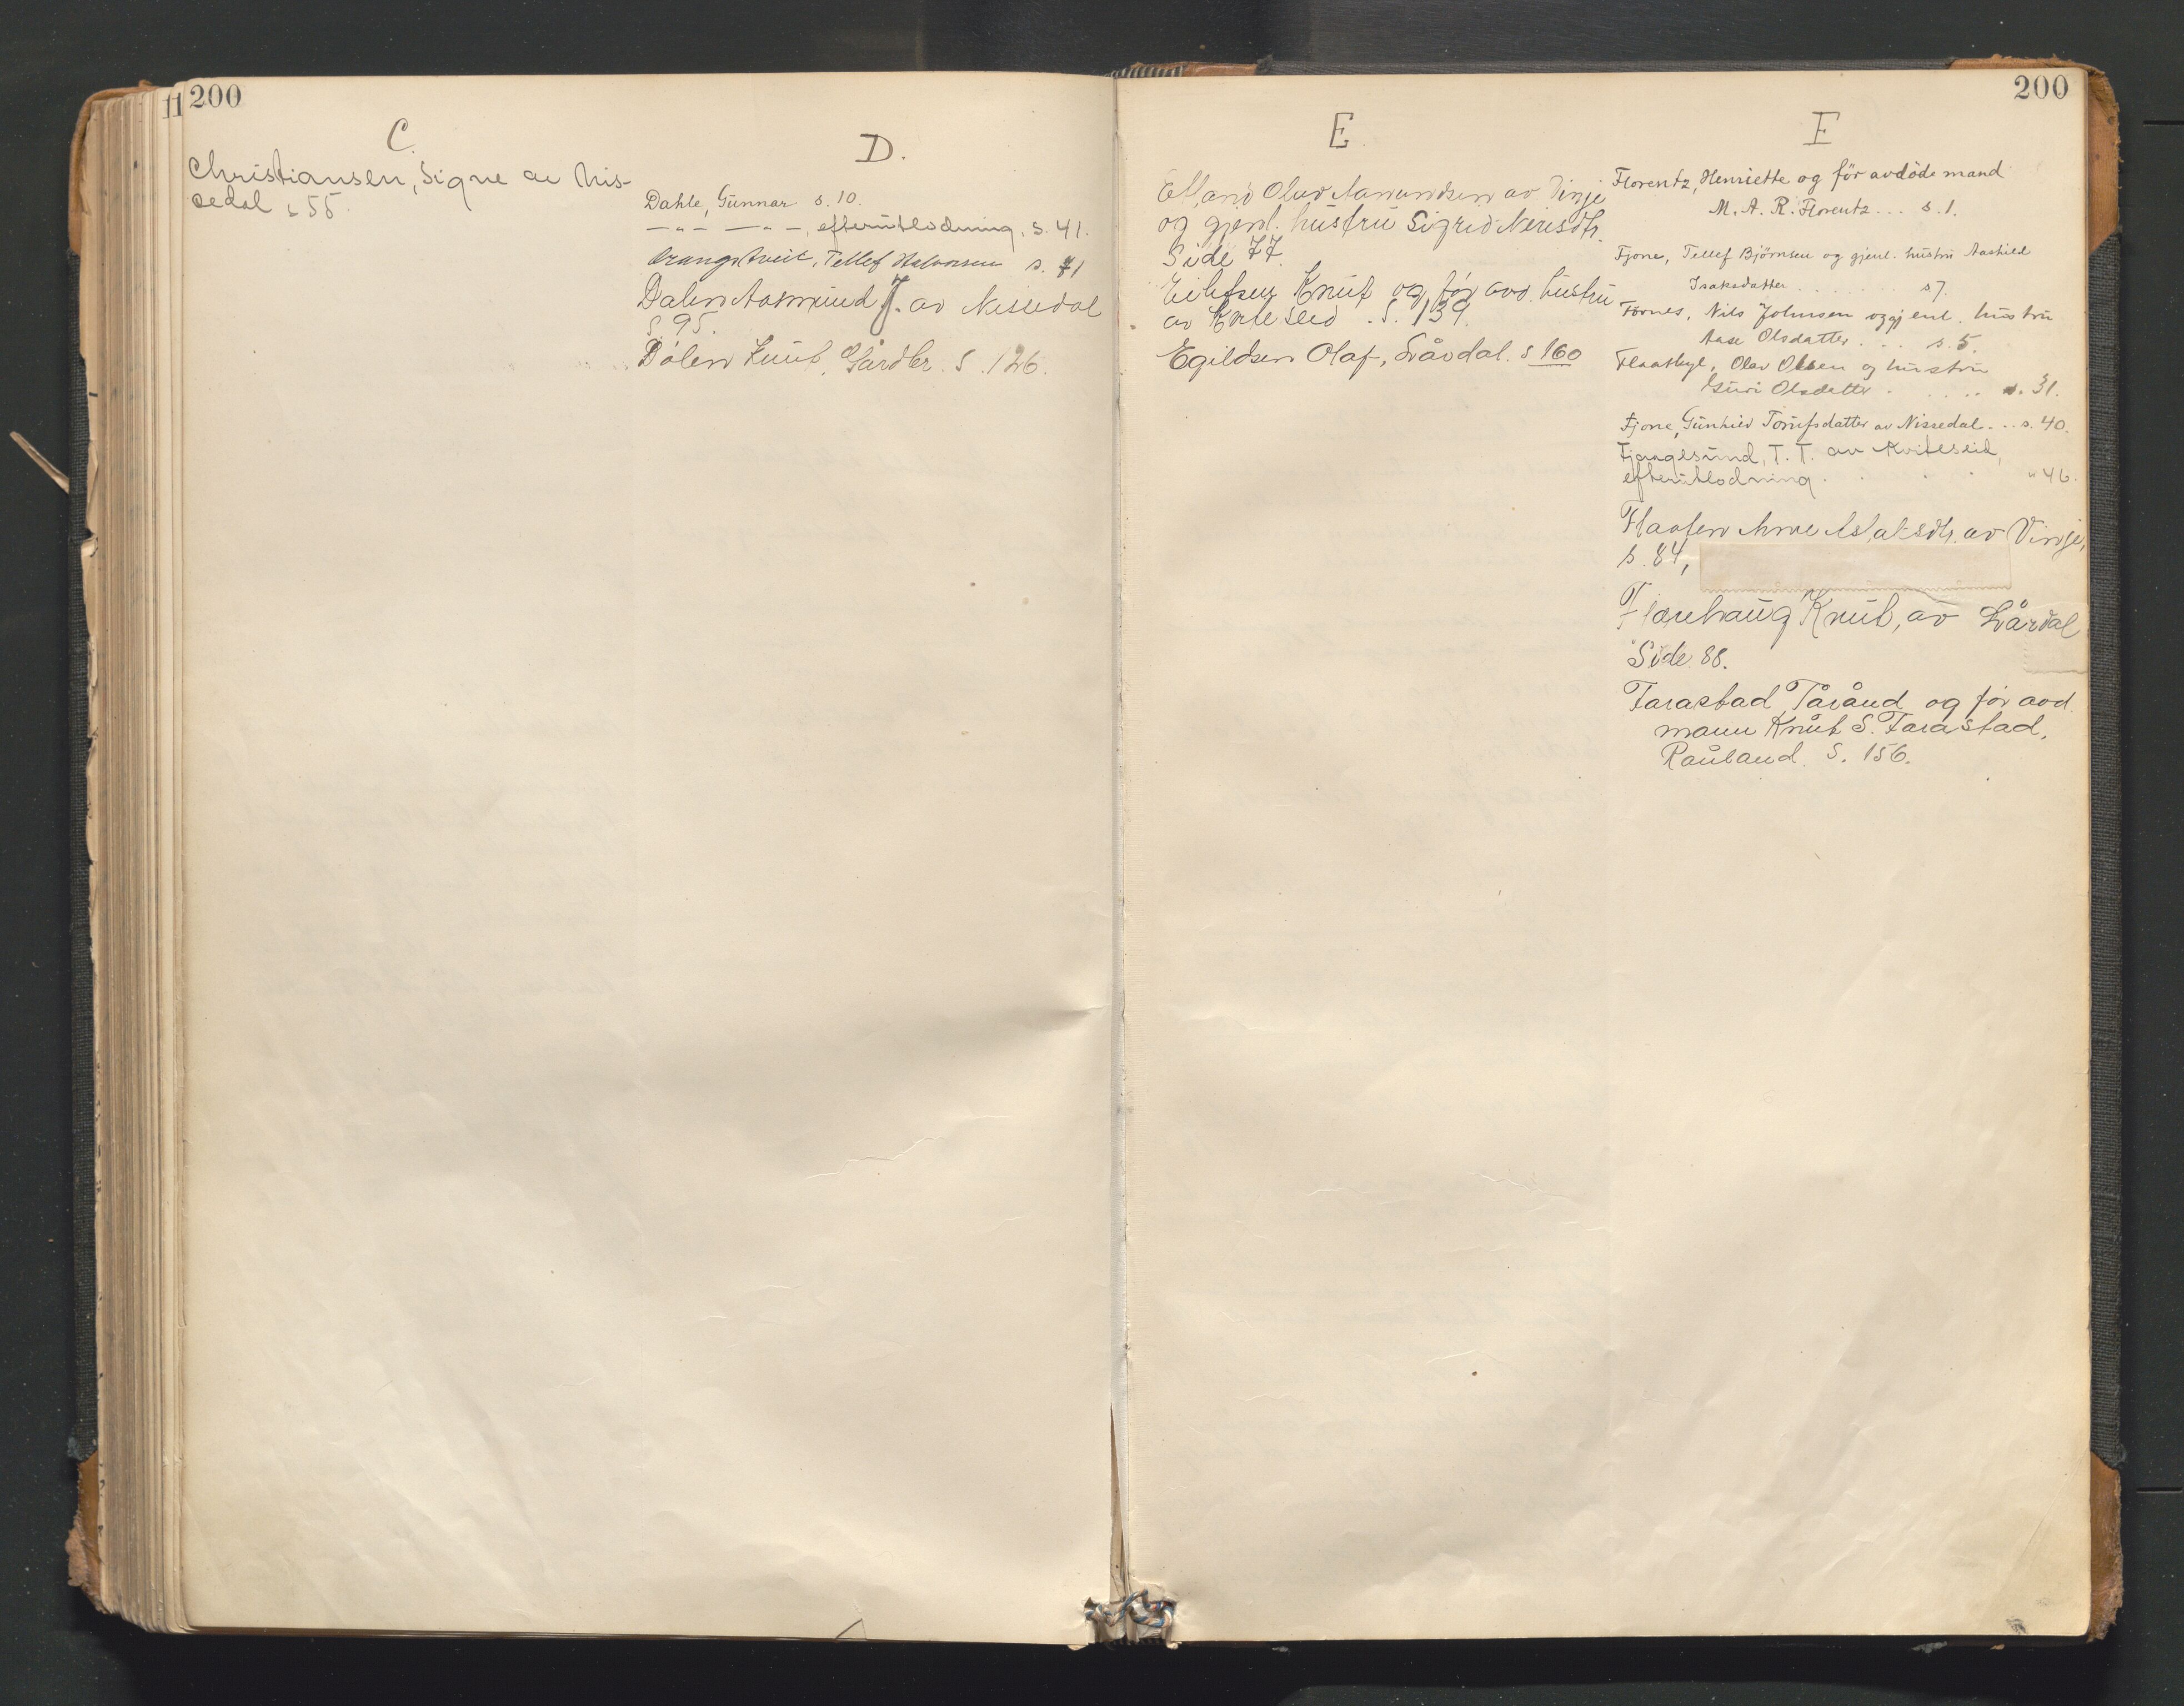 11 200
C.
Christiansen, Signe av Nis-
sedal s 55.
D.
Dahle, Gunnar s. 10.
— " — — " —, efterutlodning, s. 41.
Drangstveit, Tellef Halvorsen s. 71
Dalen Aasmund J. av Nissedal
S 95.
Dølen Knut, Gårdbr. S. 126.
200
E.
Olav Aamundsen av Vinje
og gjenl. hustru Sigrid Nerisdtr.
Side 77.
Eilefsen Knut og før avd. hustru
av Kviteseid. S. 139.
Egildsen Olaf, Lårdal. s 160
F
Florentz, Henriette og før avdøde mand
M. A. R. Florentz... s. 1.
Fjone, Tellef Bjørnsen og gjenl. hustru Aashild
Isaksdatter . . . . . . s 7.
Fornes, Nils Johnsen og gjenl. hustru
Aase Olsdatter . . . s. 5.
Flaatbyl, Olav Olsen og hustru
Guri Olsdatter . . . . . s. 31.
Fjone, Gunhild Torufsdatter av Nissedal . . . s. 40.
Fjaagesund, T. T. av Kviteseid,
efterutlodning . . . . " 46.
Flaaten Anne Aslaksdtr. av Vinje,
s. 84,
Knut, av Lårdal
Side 88.
Farastad Tårånd og før avd.
mann Knut S. Farastad,
Rauland. S. 156.